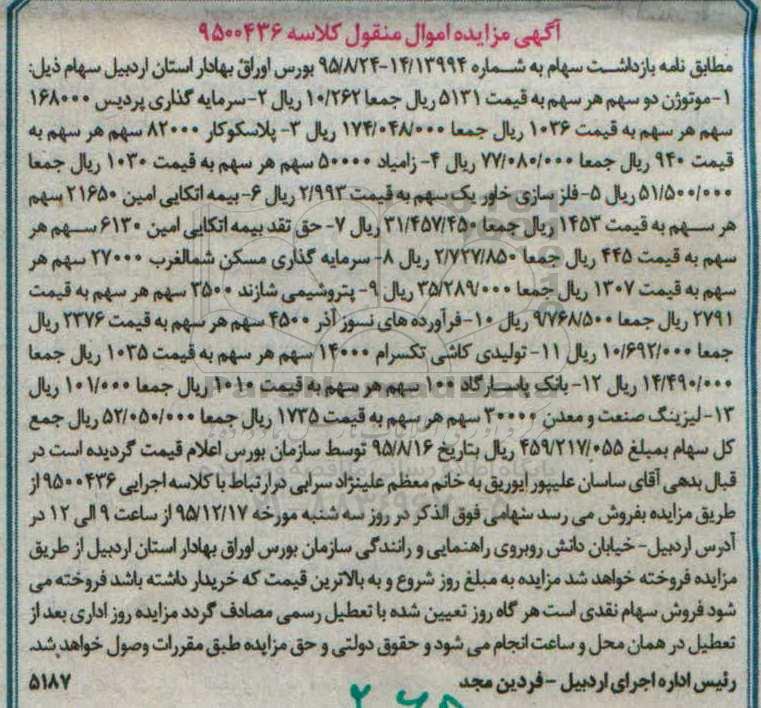 آگهی مزایده اموال منقول کلاسه ۹۵۰۰۴۳۶
مطابق نامه بازداشت سهام به شماره ۱۴/۱۳۹۹۴-۹۵/۸/۲۴ بورس اوراق بهادار استان اردبیل سهام ذیل:
۱-موتوژن دو سهم هر سهم به قیمت ۵۱۳۱ ریال جمعا ۱۰/۲۶۲ ریال ۲-سرمایه گذاری پردیس ۱۶۸۰۰۰
سهم هر سهم به قیمت ۱۰۳۶ ریال جمعا ۱۷۴/۰۴۸/۰۰۰ ریال ۳- پلاسکوکار ۸۲۰۰۰ سهم هر سهم به
قیمت ۹۴۰ ریال جمعا ۷۷/۰۸۰/۰۰۰ ریال ۴- زامیاد ۵۰۰۰۰ سهم هر سهم به قیمت ۱۰۳۰ ریال جمعا
۵۱/۵۰۰/۰۰۰ ریال ۵- فلز سازی خاور یک سهم به قیمت ۲/۹۹۳ ریال ۶- بیمه اتکایی امین ۲۱۶۵۰ سهم
هر سهم به قیمت ۱۴۵۳ ریال جمعا ۳۱/۴۵۷/۴۵۰ ریال ۷- حق تقد بیمه اتکایی امین ۶۱۳۰ سهم هر
سهم به قیمت ۴۴۵ ریال جمعا ۲/۷۲۷/۸۵۰ ریال ۸- سرمایه گذاری مسکن شمالغرب ۲۷۰۰۰ سهم هر
سهم به قیمت ۱۳۰۷ ریال جمعا ۳۵/۲۸۹/۰۰۰ ریال ۹- پتروشیمی شازند ۳۵۰۰ سهم هر سهم به قیمت
۲۷۹۱ ریال جمعا ۹/۷۶۸/۵۰۰ ریال ۱۰-فرآورده های نسوز آذر ۴۵۰۰ سهم هر سهم به قیمت ۲۳۷۶ ریال
جمعا ۱۰/۶۹۲/۰۰۰ ریال ۱۱- تولیدی کاشی تکسرام ۱۴۰۰۰ سهم هر سهم به قیمت ۱۰۳۵ ریال جمعا
۱۴/۴۹۰/۰۰۰ ریال ۱۲- بانک پاسارگاد ۱۰۰ سهم هر سهم به قیمت ۱۰۱۰ ریال جمعا ۱۰۱/۰۰۰ ریال
۱۳- لیزینگ صنعت و معدن ۳۰۰۰۰ سهم هر سهم به قیمت ۱۷۳۵ ریال جمعا ۵۲/۰۵۰/۰۰۰ ریال جمع
کل سهام بمبلغ ۴۵۹/۲۱۷/۰۵۵ ریال بتاریخ ۹۵/۸/۱۶ توسط سازمان بورس اعلام قیمت گردیده است در
قبال بدهی آقای ساسان علیپور ایوریق به خانم معظم علینژاد سرابی درارتباط با کلاسه اجرایی ۹۵۰۰۴۳۶ از
طریق مزایده بفروش می رسد سهامی فوق الذکر در روز سه شنبه مورخه ۹۵/۱۲/۱۷ از ساعت ۹ الی ۱۲ در
آدرس اردبیل- خیابان دانش روبروی راهنمایی و رانندگی سازمان بورس اوراق بهادار استان اردبیل از طریق
مزایده فروخته خواهد شد مزایده به مبلغ روز شروع و به بالاترین قیمت که خریدار داشته باشد فروخته می
شود فروش سهام نقدی است هر گاه روز تعیین شده با تعطیل رسمی مصادف گردد مزایده روز اداری بعد از
تعطیل در همان محل و ساعت انجام می شود و حقوق دولتی و حق مزایده طبق مقررات وصول خواهد شد.
رئیس اداره اجرای اردبیل -فردین مجد ۵۱۸۷